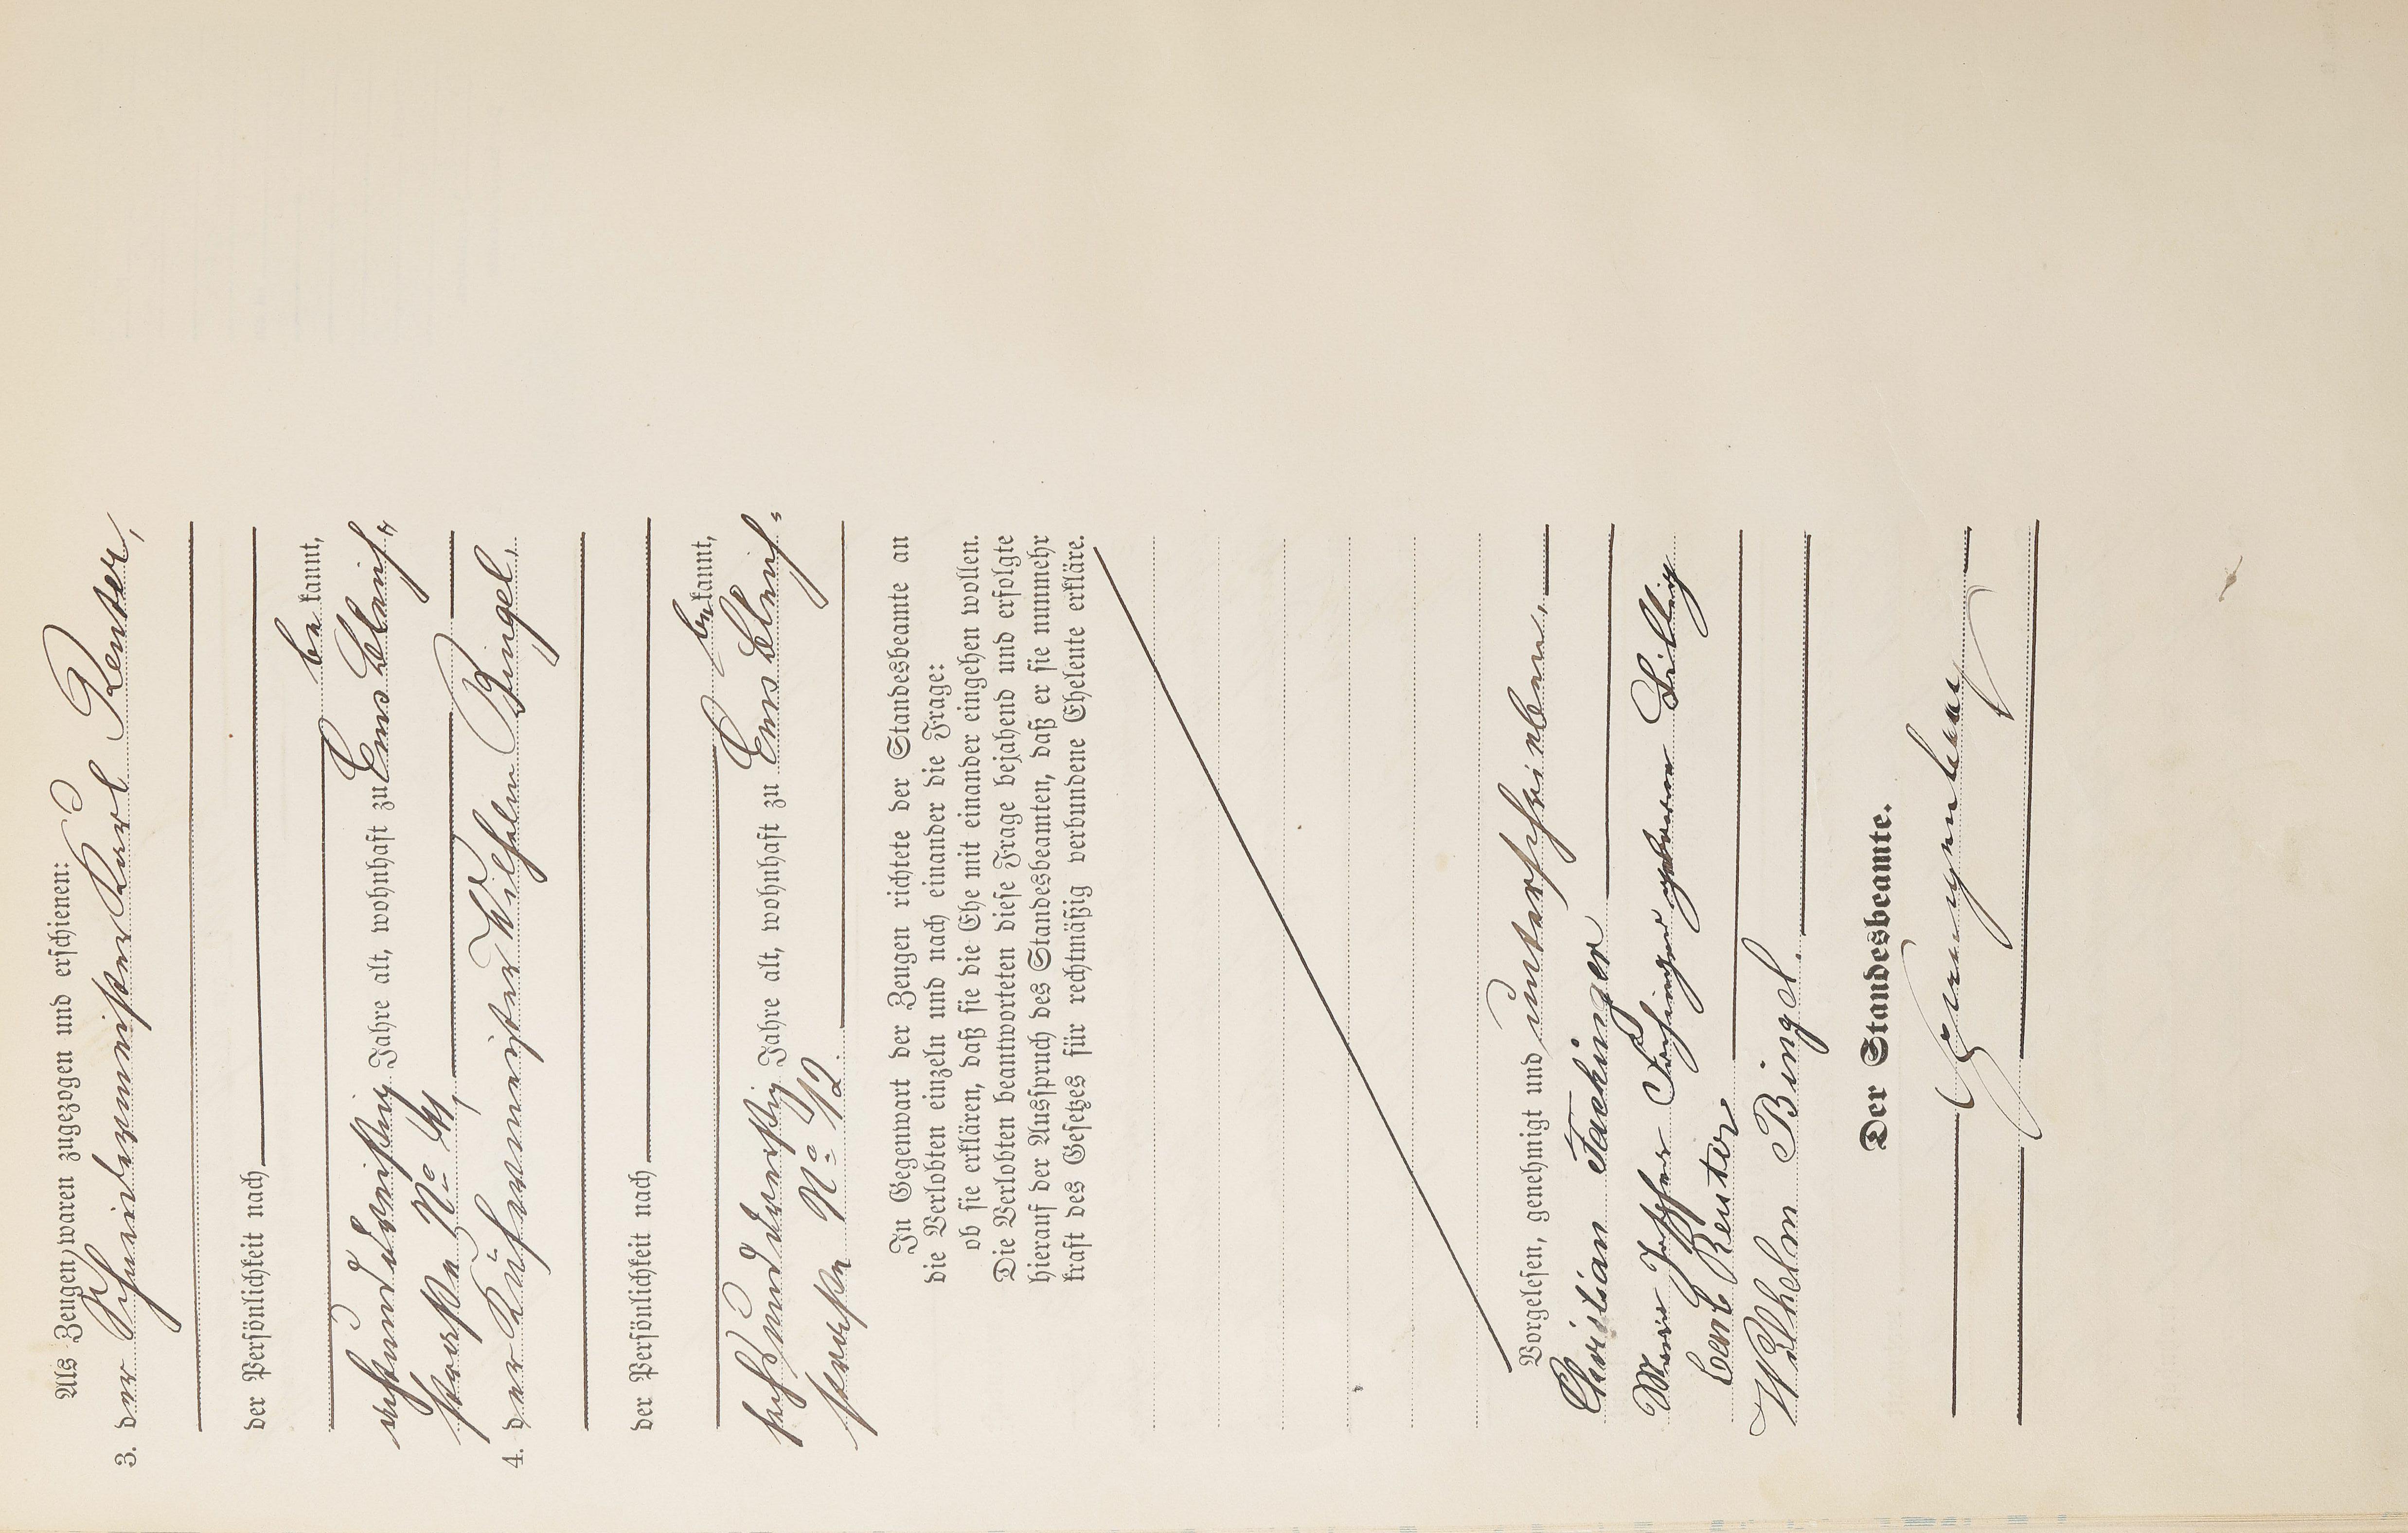 Als Zeugen waren zugezogen und erschienen:
3. der Schneidermeister Karl Reuter,
der Persönlichkeit nach
bekannt,
achtunddreißig Jahre alt, wohnhaft zu Ems Bleich-
straße No
4. der Küfermeister Wilhelm Bingel,
der Persönlichkeit nach
bekannt,
sechsunddreißig Jahre alt, wohnhaft zu Ems Bleich-
straße No 12.
In Gegenwart der Zeugen richtete der Standesbeamte an
die Verlobten einzeln und nach einander die Frage:
ob sie erklären, daß sie die Ehe mit einander eingehen wollen.
Die Verlobten beantworteten diese Frage bejahend und erfolgte
hierauf der Ausspruch des Standesbeamten, daß er sie nunmehr
kraft des Gesetzes für rechtmäßig verbundene Eheleute erkläre.
Vorgelesen, genehmigt und unterschrieben,
Christian Fachinger
Fachinger geborene
Carl Reuter
Wilhelm Bingel.
Der Standesbeamte.